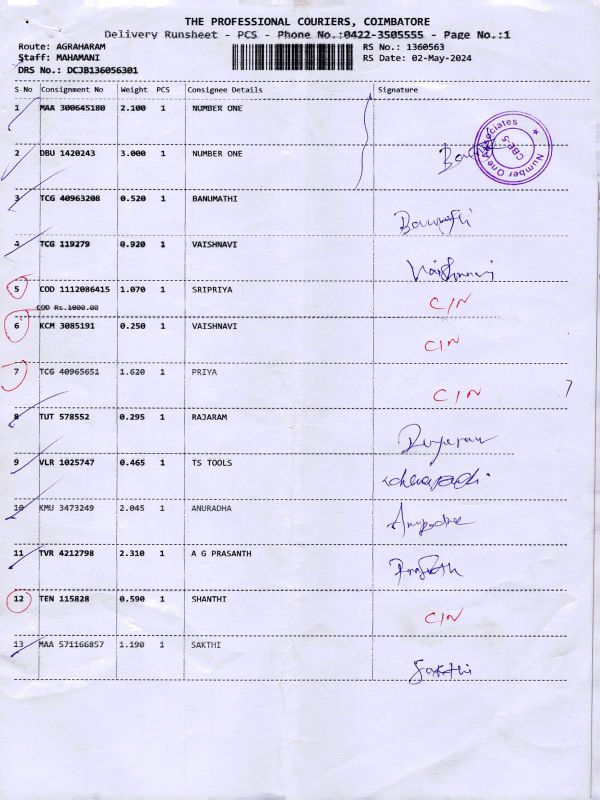 THE PROFESSIONAL COURIERS, COIMBATORE
Delivery Runsheet - PCS - Phone No.:0422-3505555 - Page No.:1
Route: AGRAHARAM RS No.: 1360563
Staff: MAHAMANI RS Date: 02-May-2024
DRS No.: DCJB136056301
S No Consignment No Weight PCS Consignee Details Signature
1 MAA 300645180 2.100 1 NUMBER ONE
2 DBU 1420243 3.000 1 NUMBER ONE
Number One Associates CBE
3 TCG 40963208 0.520 1 BANUMATHI
Banumathi
4 TCG 119279 0.920 1 VAISHNAVI
Vaishnavi
5 COD 1112086415 1.070 1 SRIPRIYA
COD Rs.1000.00
C/N
6 KCM 3085191 0.250 1 VAISHNAVI
C/N
7 TCG 40965651 1.620 1 PRIYA
C/N
8 TUT 578552 0.295 1 RAJARAM
Rajaram
9 VLR 1025747 0.465 1 TS TOOLS
10 KMU 3473249 2.045 1 ANURADHA
Anuradha
11 TVR 4212798 2.310 1 A G PRASANTH
Prasanth
12 TEN 115828 0.590 1 SHANTHI
C/N
13 MAA 571166857 1.190 1 SAKTHI
Sakthi